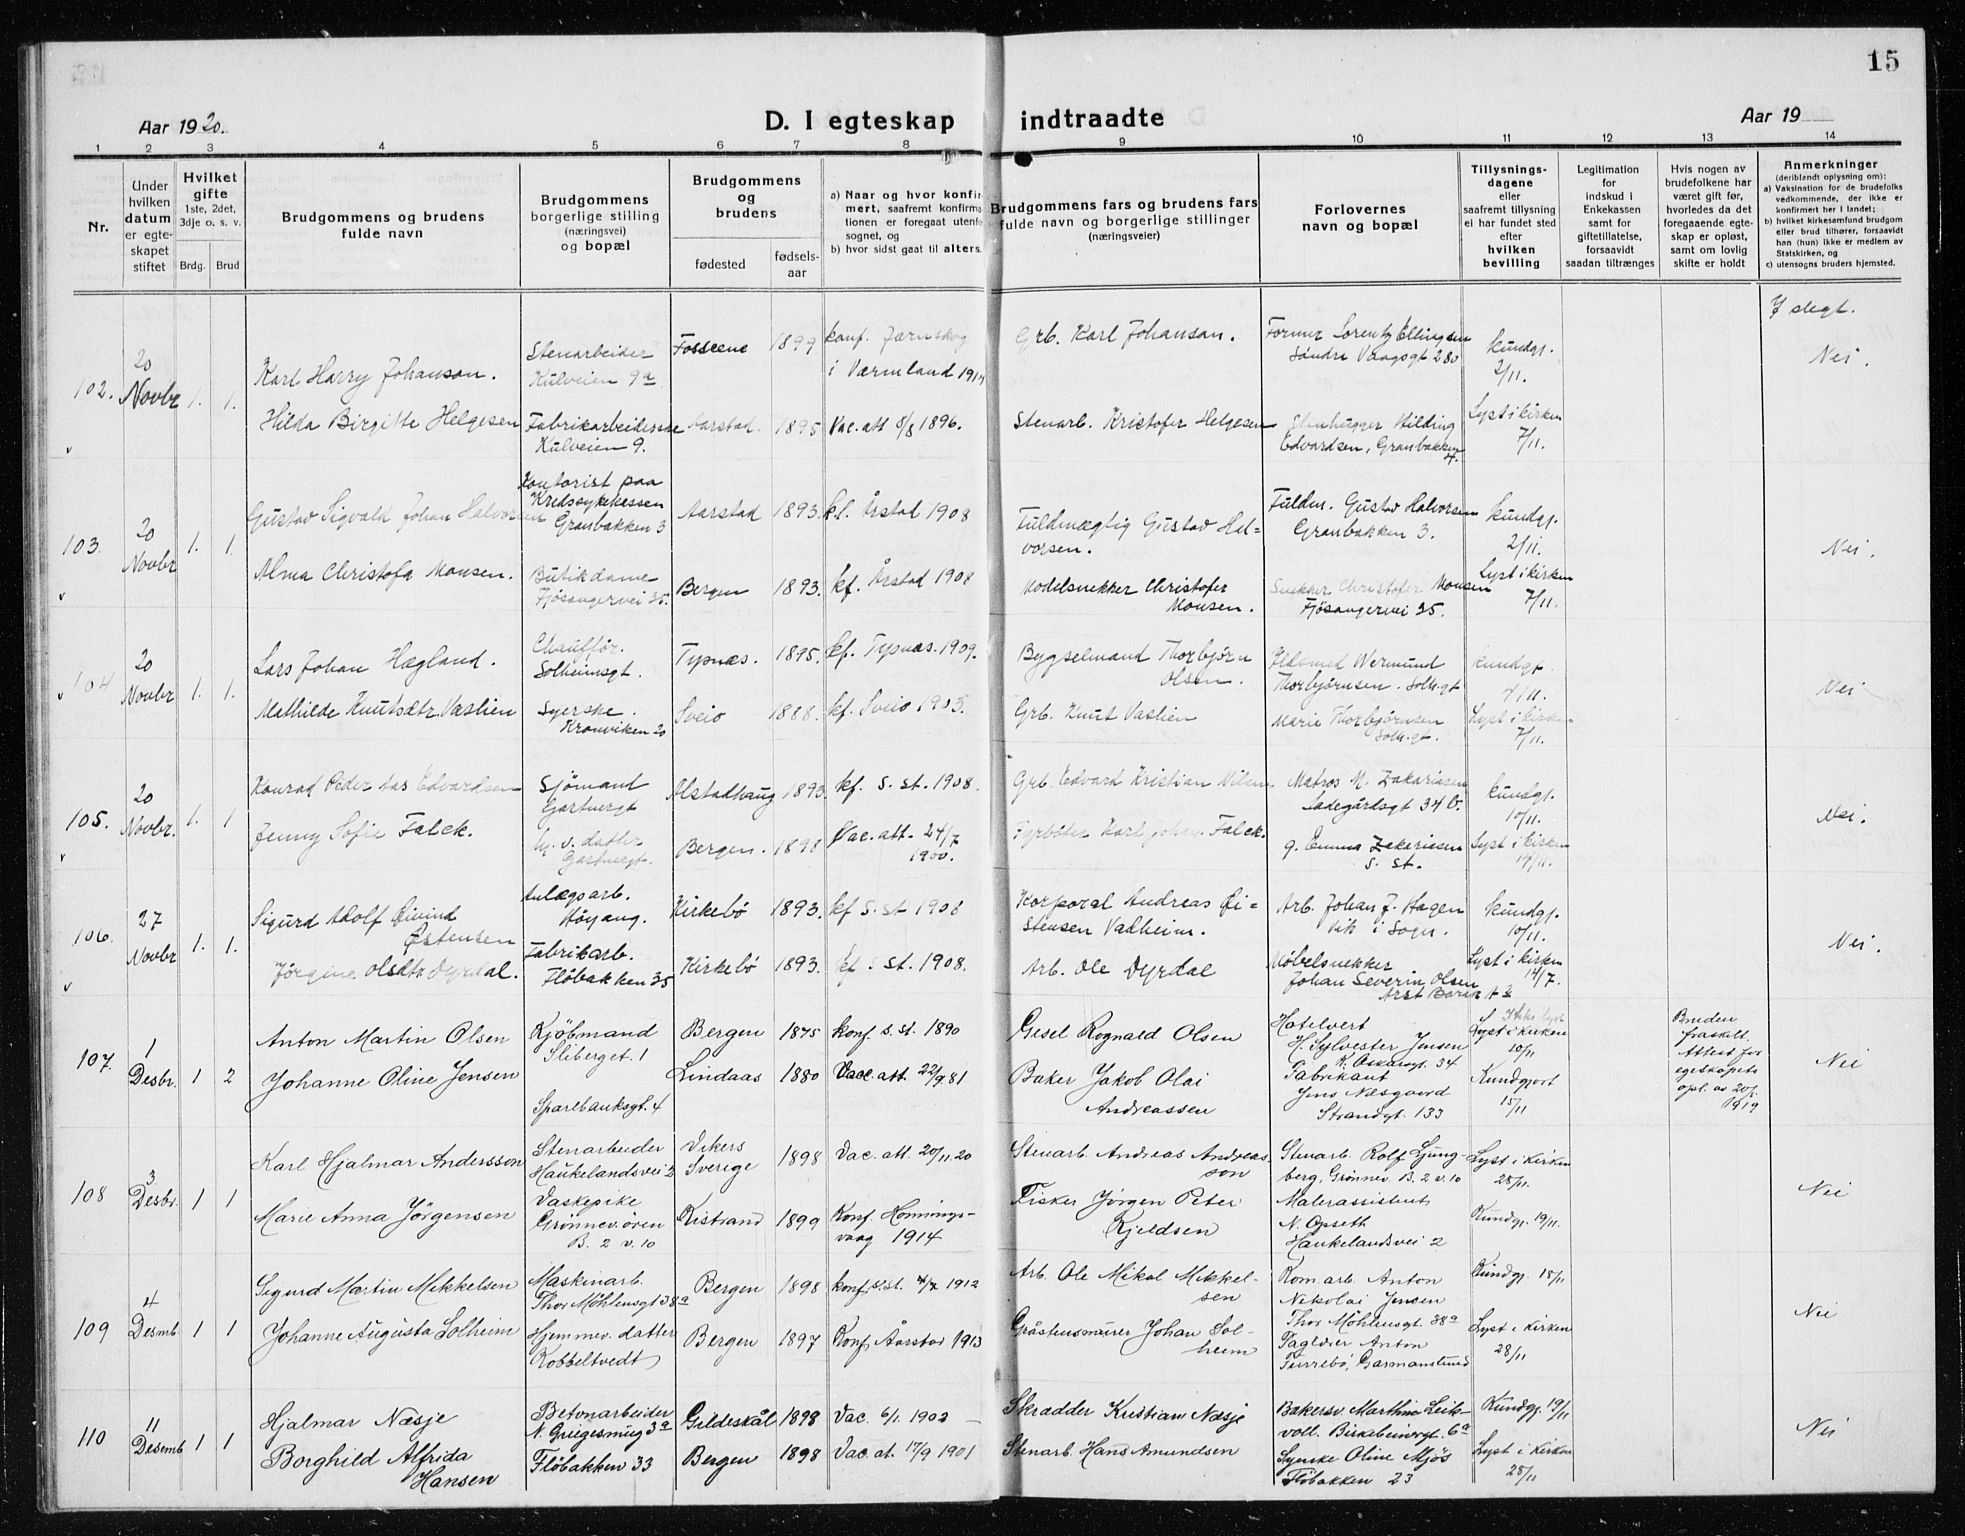 15
Aar 1920.
D. I egteskap indtraadte
Aar 19
1 2 3 4 5 6 7 8 9 10 11 12 13 14
Nr.
Under
hvilken
datum
er egte-
skapet
stiftet
Hvilket
gifte
1ste, 2det,
3dje o. s. v.
Brdg. Brud
Brudgommens og brudens
fulde navn
Brudgommens
borgerlige stilling
(næringsvei)
og bopæl
Brudgommens
og
brudens
fødested
fødsels-
aar
a) Naar og hvor konfir-
mert, saafremt konfirma-
tionen er foregaat utenfor
sognet, og
b) hvor sidst gaat til alters.
Brudgommens fars og brudens fars
fulde navn og borgerlige stillinger
(næringsveier)
Forlovernes
navn og bopæl
Tillysnings-
dagene
eller
saafremt tillysning
ei har fundet sted
efter
hvilken
bevilling
Legitimation
for
indskud i
Enkekassen
samt for
giftetillatelse,
forsaavidt
saadan tiltrænges
Hvis nogen av
brudefolkene har
været gift før,
hvorledes da det
foregaaende egte-
skap er opløst,
samt om lovlig
skifte er holdt
Anmerkninger
(deriblandt oplysning om):
a) Vaksination for de brudefolks
vedkommende, der ikke er
konfirmert her i landet;
b) hvilket kirkesamfund brudgom
eller brud tilhører, forsaavidt
han (hun) ikke er medlem av
Statskirken, og
c) utensogns bruders hjemsted.
I slegt.
102.
20
Novbr
1. 1.
Karl Harry Johanson.
Stenarbeider
Kulveien 9a
1899
konf. Jærnskog
i Værmland
Grb. Karl Johanson.
Former Lorentz Ellingsen
Søndre Vaagsgt 280
kundgj.
2/11.
Nei.
Hilda Birgitte Helgesen
Fabrikarbeiderske
Kulveien 9.
Aarstad.
1895
Vac. att 8/8 1896.
Stenarb. Kristofer Helgesen
Stenhugger Hilding
Edvardsen, Granbakken
4.
Lyst i kirken
7/11.
103.
20
Novbr
1. 1.
Gustav Sigvald Johan Halvorsen
Kontorist paa
Kredssykekassen
Granbakken 3
Aarstad
1893.
kf. Årstad 1908
Fuldmægtig Gustav Hal-
vorsen.
Fuldm. Gustav Halvorsen
Granbakken 3.
kundgj.
2/11.
Nei.
Alma Christofa Monsen.
Butikdame
Fjösangervei 35.
Bergen
1893.
kf. Årstad 1908
Modelsnekker Christofer
Monsen.
Snekker Christofer Monsen
Fjösangervei 35.
Lyst i kirken
7/11.
104
20
Novbr
1. 1.
Lars Johan Hægland.
Chaufför.
Solheimsgt.
Tysnæs.
1895.
kf. Tysnæs. 1909.
Bygselmand Thorbjörn
Olsen.
Wermund
Thorbjörnsen. Solh.gt
kundgt.
4/11.
Nei
Mathilde Knutsdtr. Vaslien
Syerske.
Kronviken 20
Sveio
1888.
kf. Sveio 1903.
Grb. Knut Vaslien
Marie Thorbjörnsen
Solh.gt.
Lyst i kirken
7/11.
105.
20
Novbr.
1. 1
Konrad Peder Edvardsen
Sjömand
Gartnergt
Alstadhaug
1893.
kf. s. st. 1908.
Grb. Edvard Kristian Nilsen
Matros M. Zakariasen
Ladegårdsgt 34 b.
kundgj.
10/11.
Nei.
Jenny Sofie Falck.
hj. v. datter
Gartnergt.
Bergen.
1898
Vac. att. 24/7
1900.
Fyrböter Karl Johan Falck.
g. Emma Zakariasen
s. st.
Lyst i kirken
14/11.
106.
27
Novbr
1. 1.
Sigurd Adolf Øivind
Østensen
Anlægsarb.
Höyang.
Kirkebö
1893.
kf s. st 1908
Korporal Andreas Øi-
stensen Vadheim.
Arb. Johan J. Hagen
Vik i Sogn.
kundgj.
10/11.
Nei.
Jörgine Olsdtr Dyrdal.
Fabrikarb.
Flöbakken 35
Kirkebö
1893.
kf s. st. 1908.
Arb. Ole Dyrdal
Möbelsnekker
Johan Severin Olsen
Lyst i kirken
14/7.
107.
1
Desbr.
1 2
Anton Martin Olsen
Kjöbmand
Sliberget. 1
Bergen
1875
konf. s. st. 1890
Gesel Rognald Olsen
Hotelvert
H. Sylvester Jensen
K. Oskarsgt. 34
Lyst i kirken
10/11
Bruden
fraskilt.
Attest for
egteskapets
opl. av 20/
1919
Nei
Johanne Oline Jensen
Sparebanksgt. 4
Lindaas
1880
Vacc. att. 22/9 81
Baker Jakob Olai
Andreassen
Fabrikant
Jens Næsgaard
Strandgt. 133
Kundgjort
15/11
108
3
Desbr.
1 1
Karl Hjalmar Andersson
Stenarbeider
Haukelandsvei 2
Vikers
Sverige
1898
Vac. att. 20/11.20
Stenarb. Andreas Andreas-
son
Stenarb. Rolf Ljung-
berg, Grönnev. B. 2 v. 10
Lyst i kirken
28/11.
Nei
Marie Anna Jörgensen
Vaskepike
Grönnev. ören
B. 2 v. 10
Kistrand
1899
Konf. Honnings-
vaag 1914
Fisker Jörgen Peter
Kjeldsen
Malerassistent
N. Opseth
Haukelandsvei 2
Kundgj. 19/11.
109
4
Desmb.
1 1
Sigurd Martin Mikkelsen
Maskinarb.
Thor Möhlensgt 38a
Bergen
1898
konf s.st. 1912
Arb. Ole Mikal Mikkel-
sen
Kom. arb. Anton
Nikolai Jensen
Thor Möhlensgt. 38a
Kundgj. 15/11
Nei
Johanne Augusta Solheim
Hjemmev. datter
Kobbeltvedt
Bergen
1897
Konf Aarstad 1913
Gråstensmurer Johan Sol-
heim
Fagldier Anton
Turrebö, Garmanslund
Lyst i kirken
28/11
110
11
Desemb
1 1
Hjalmar Næsje
Betonarbeider
N. Griegesmug 3a
Gildeskål
1898
Vac. 6/1. 1902
Skrædder Kristian Næsje
Bakersv. Marthine Leik-
voll. Birkebeinergt. 6a
Kundgj 19/11
Nei
Borghild Alfrida
Hansen
Flöbakken 33
Bergen
1898
Vac. at. 17/9 1901
Stenarb. Hans Amundsen
Syerske Oline Mjös
Flöbakken 23
Lyst i kirken
28/11